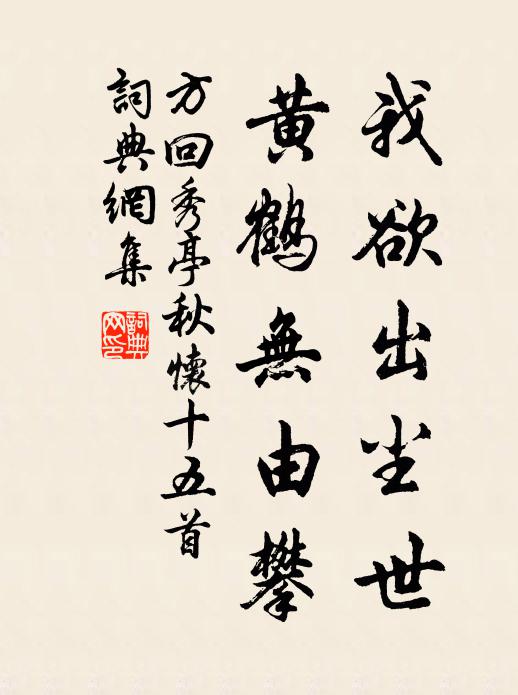 我欲出尘世
黄鶴無由攀
方回秀亭秋懷十五首
詞典網集
詞典网印